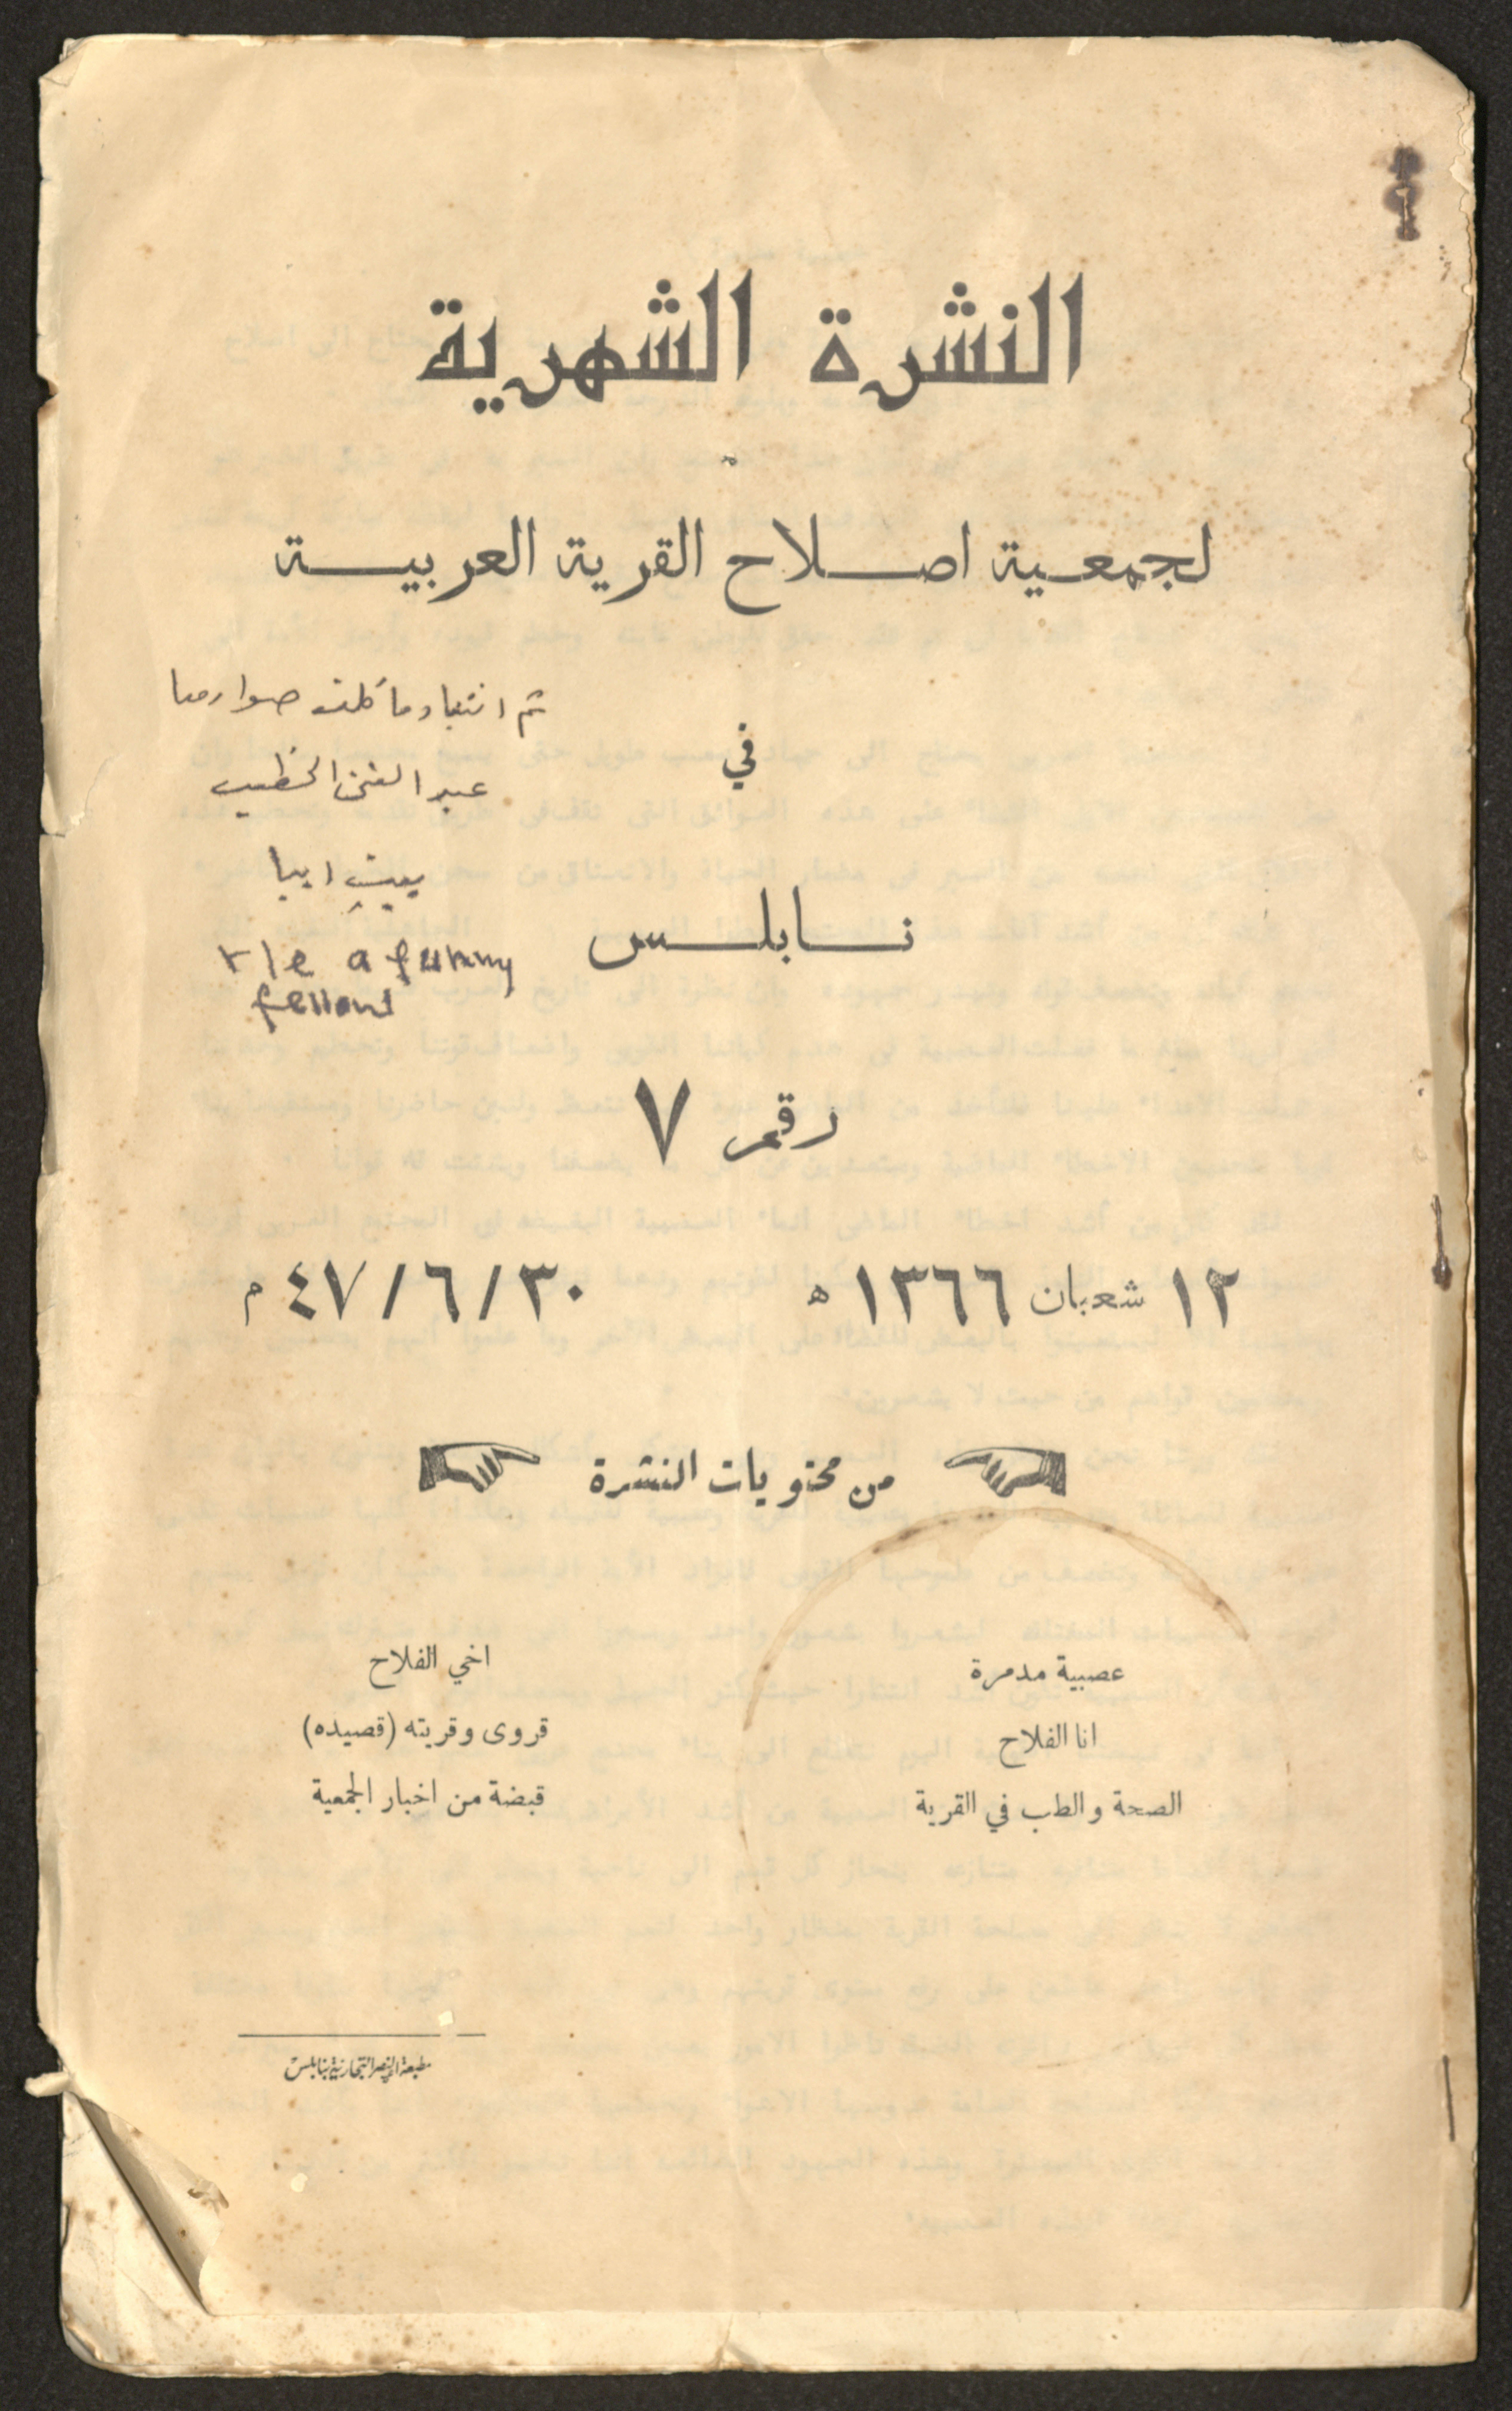 النشرة الشهرية
لجمعية اصلاح القرية العربية
في
نابلس
رقم ٧
١٢ شعبان ١٣٦٦ ه
٣٠/٦/٤٧ م
عبد الغني الخطيب
بيت ايبا
a funny
fellow
من محتويات النشرة
عصبية مدمرة
انا الفلاح
الصحة والطب في القرية
اخي الفلاح
قروى وقريته (قصيده)
قبضة من اخبار الجمعية
مطبعة النصر التجارية بنابلس